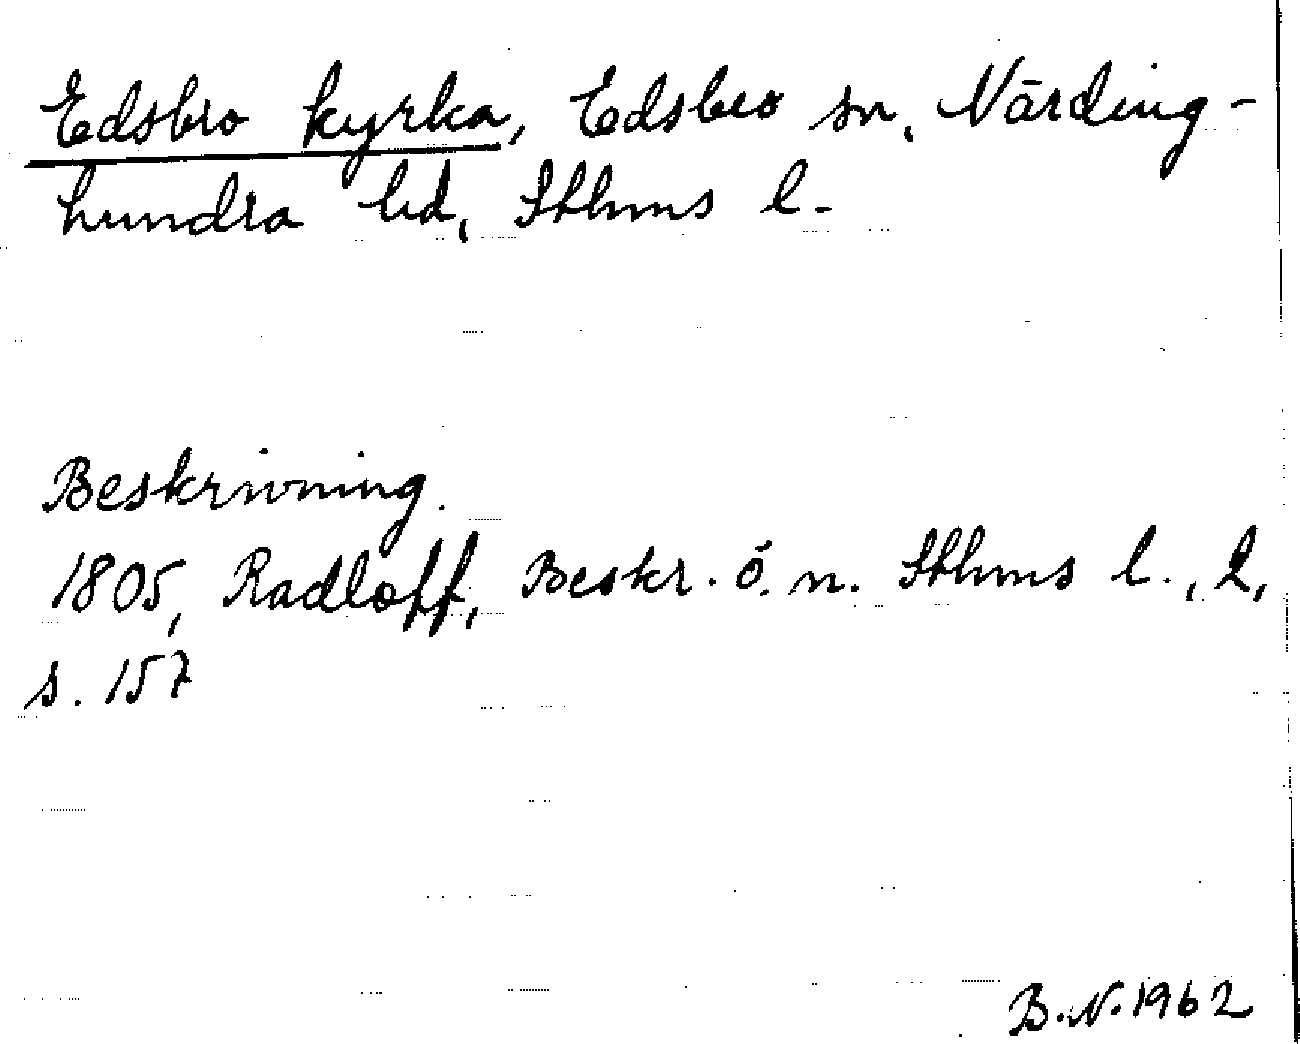 Edsbro kyrka, Edsbro sn, Närding-
hundra hd, Sthlms l.
Beskrivning.
1805, Radloff, Beskr. ö. n. Sthlms l., 2,
s. 157
B.N. 1962